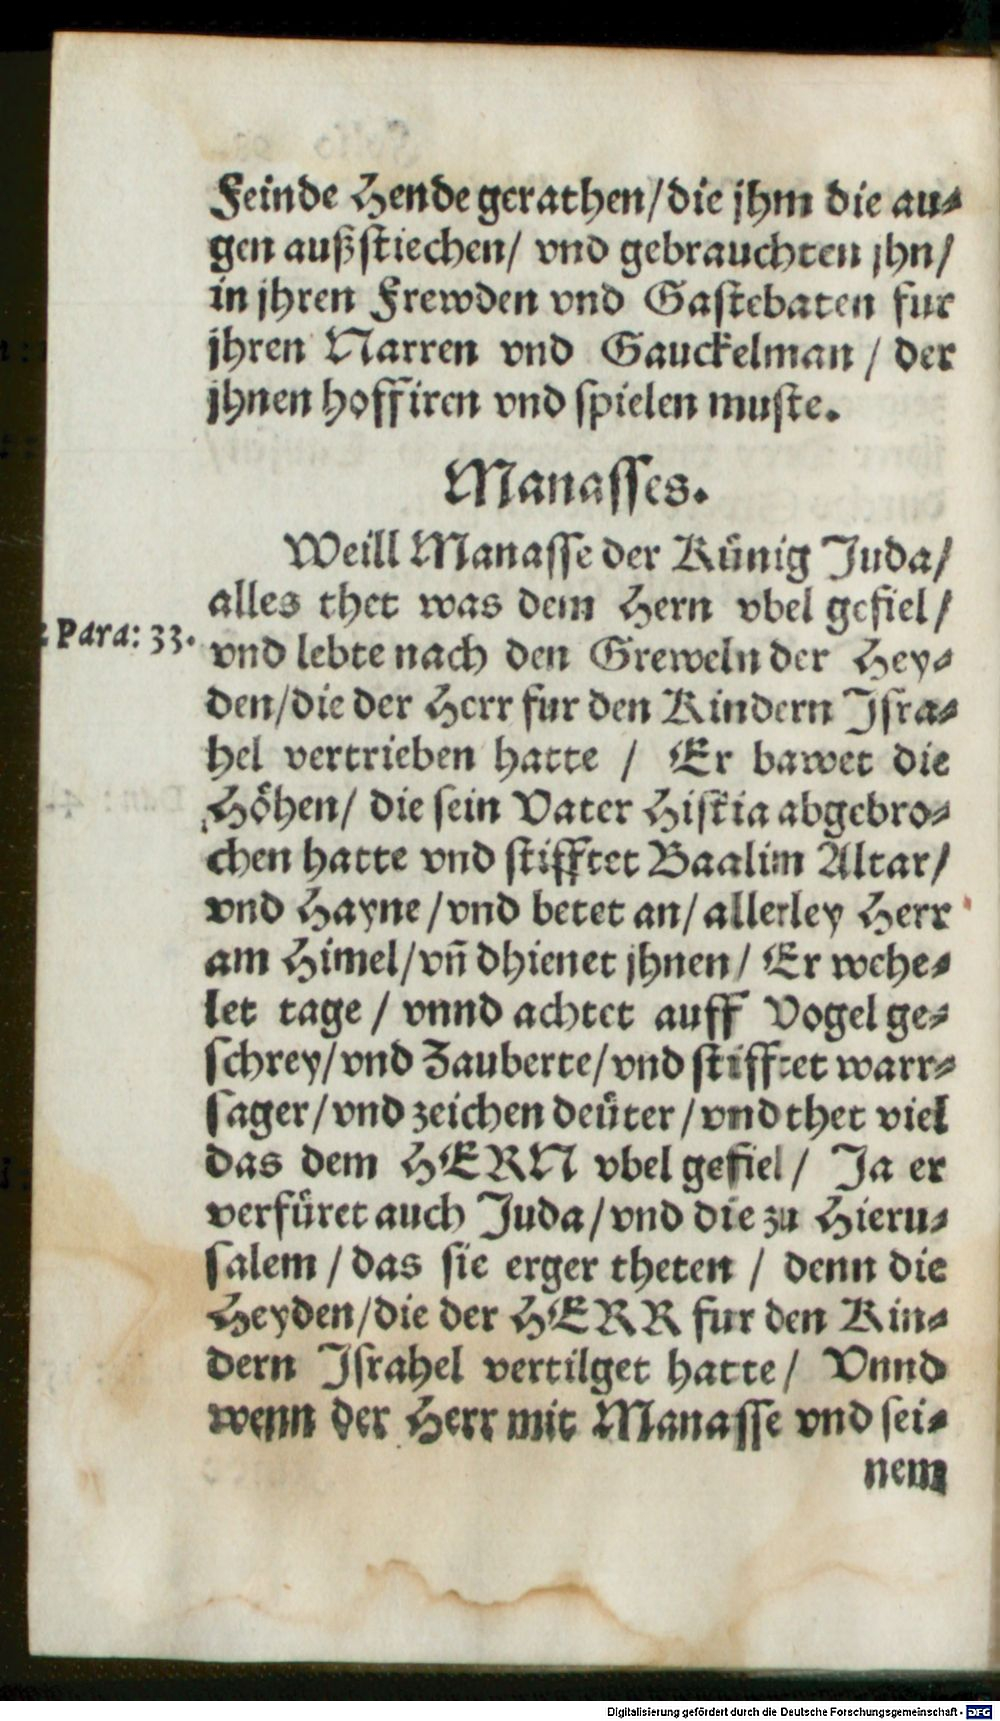 Feinde Hende gerathen/die jhm die au⸗
gen außstiechen/ vnd gebrauchten jhn/
in jhren Frewden vnd Gastebaten fur
jhren Narren vnd Gauckelman / der
jhnen hoffiren vnd spielen muste.
Manasses.
Weill Manasse der Künig Juda/
alles thet was dem Hern vbel gefiel/
2 Para: 33.
vnd lebte nach den Greweln der Hey⸗
den/die der Herr fur den Kindern Jsra⸗
hel vertrieben hatte / Er bawet die
Höhen/ die sein Vater Hiskia abgebro⸗
chen hatte vnd stifftet Baalim Altar/
vnd Hayne /vnd betet an/ allerley Herr
am Himel/vn̄ dhienet jhnen/ Er wehe⸗
let tage / vnnd achtet auff Vogel ge⸗
schrey/vnd Zauberte/vnd stifftet warr⸗
sager/vnd zeichen deüter /vnd thet viel
das dem HERN vbel gefiel/ Ja er
verfüret auch Juda/vnd die zu Hieru⸗
salem /das sie erger theten / denn die
Heyden/die der HERR fur den Kin⸗
dern Jsrahel vertilget hatte/ Vnnd
wenn der Herr mit Manasse vnd sei⸗
nem
Digitalisierung gefördert durch die Deutsche Forschungsgemeinschaft - DFG